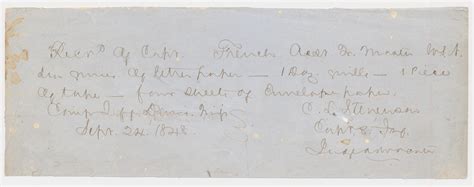 Recvd of Capt. French Asst Qr. Master U.S.A.
quires of letter paper — 1 Doz quills — 1 Piece
of tape — four sheets of Envelope paper.
Camp
Sept. 24. 1848.
C. L. Stevenson
Capt 5 Inf.